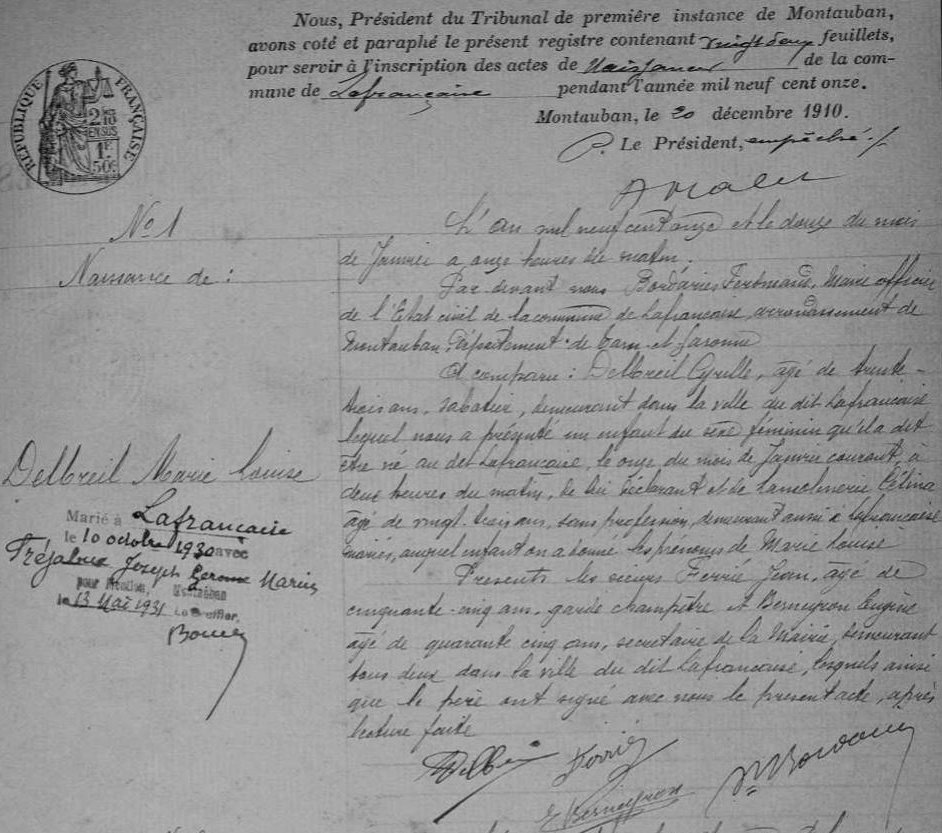 Nous, Président du Tribunal de première instance de Montauban,
avons coté et paraphé le présent registre contenant vingt deux feuillets,
pour servir à l'inscription des actes de Naissances de la com-
mune de Lafrançaise pendant l'année mil neuf cent onze.
Montauban, le 20 décembre 1910.
P. Le Président, empêché
RÉPUBLIQUE FRANÇAISE
2/10
EN SUS
1F
50c
No 1
Naissance de :
Delbreil Marie Louise
Marié à Lafrançaise
le 10 octobre 1930 avec
Joseph Marius
pour Mention, Montauban
le 13 Mai 1931 Le Greffier,
L'an mil neuf cent onze et le douze du mois
de Janvier a onze heures du matin.
Par devant nous Bordaries Ferdinand, Maire officier
de l'Etat civil de la commune de Lafrancaise arrondissement de
Montauban, département de Tarn et Garonne
A comparu : Delbreil Cyrille, agé de trente-
trois ans, sabotier, demeurant dans la ville du dit Lafrancaise
lequel nous a présenté un enfant du sexe féminin qu'il a dit
être né au dit Lafrancaise, le onze du mois de Janvier courant, à
deux heures du matin, de lui déclarant et de Lamolinerie Célina
agé de vingt trois ans, sans profession, demeurant aussi à Lafrancaise
mariés, auquel enfant on a donné les prénoms de Marie Louise
Présents les sieurs Ferrié Jean, agé de
cinquante-cinq ans, garde champêtre et Berneyron Eugène
agé de quarante cinq ans, secretaire de la Mairie, demeurant
tous deux dans la ville du dit Lafrancaise, lesquels ainsi
que le père ont signé avec nous le present acte, après
lecture faite
Ferrié
E Berneyron